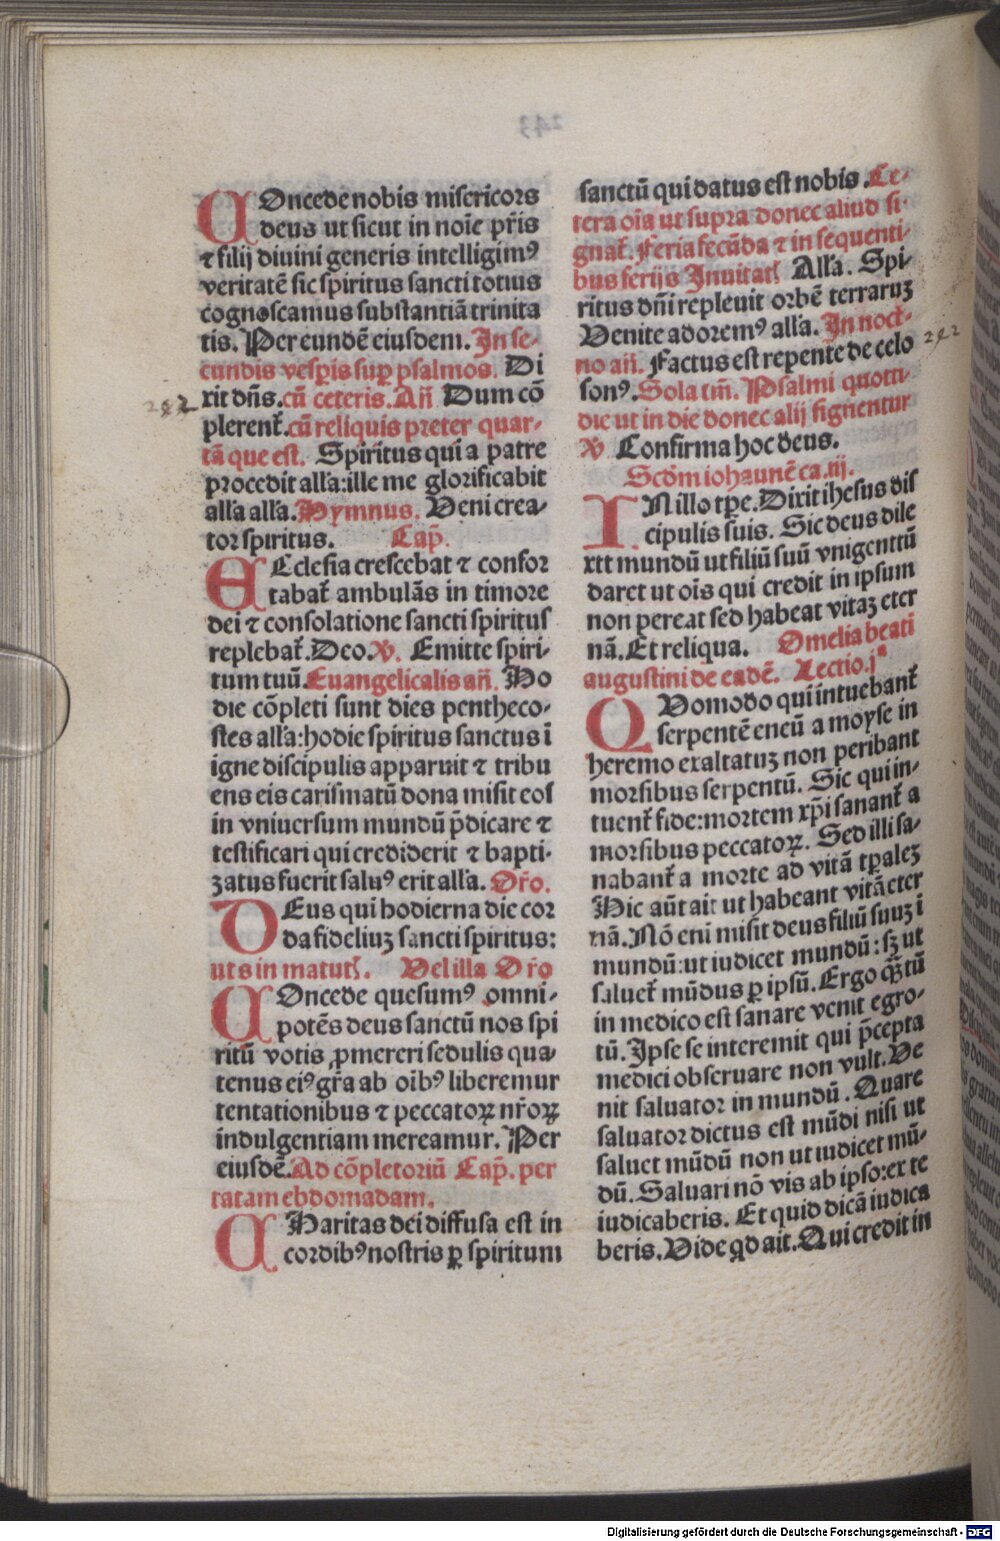 COncede nobis misericors
deus ut sicut in noīe pr̄is
⁊ filij diuini generis intelligimꝰ
veritatē sic spiritus sancti totius
cognoscamus substantiā trinita
tis. Per eundē eiusdem. In se-
cundis vesꝑis suꝑ psalmos. Di
xit dn̄s. cū ceteris. Añ Dum cō
plerent̄. cū reliquis preter quar-
tā que est. Spiritus qui a patre
procedit all'a: ille me glorificabit
all'a all'a. Hymnus. Veni crea-
tor spiritus. Cap̄.
ECclesia crescebat ⁊ confor
tabat̄ ambulās in timore
dei ⁊ consolatione sancti spiritus
replebat̄. Deo. V. Emitte spiri-
tum tuū. Euangelicalis añ. Ho
die cōpleti sunt dies pentheco-
stes all'a: hodie spiritus sanctus ī
igne discipulis apparuit ⁊ tribu
ens eis carismatū dona misit eos
in vniuersum mundū p̄dicare ⁊
testificari qui crediderit ⁊ bapti-
zatus fuerit saluꝰ erit all'a. Or̄o.
DEus qui hodierna die cor
da fideliuꝫ sancti spiritus:
ut s in matut'. Vel illa Or̄o
COncede quesumꝰ omni-
potēs deus sanctū nos spi
ritū votis ꝓmereri sedulis qua-
tenus eiꝰ gr̄a ab oībꝰ liberemur
tentationibus ⁊ peccatoꝝ nr̄oꝝ
indulgentiam mereamur. Per
eiusdē. Ad cōpletoriū Cap̄. per
totam ebdomadam.
CHaritas dei diffusa est in
cordibꝰ nostris ꝑ spiritum
sanctū qui datus est nobis. Ce-
tera oīa ut supra donec aliud si-
gnat̄. Feria secūda ⁊ in sequenti-
bus ferijs Inuitat' All'a. Spi-
ritus dn̄i repleuit orbē terraruꝫ
Venite adoremꝰ all'a. In noct-
no añ. Factus est repente de celo
sonꝰ. Sola tm̄. Psalmi quotti-
die ut in die donec alij signentur
V Confirma hoc deus.
Scd̄m iohannē ca. iij.
IN illo tp̄e. Dixit ihesus dis
cipulis suis. Sic deus dile
xit mundū ut filiū suū vnigenitū
daret ut oīs qui credit in ipsum
non pereat sed habeat vitaꝫ eter
nā. Et reliqua. Omelia beati
augustini de eadē. Lectio. jª
QVomodo qui intuebant̄
serpentē eneū a moyse in
heremo exaltatuꝫ non peribant
morsibus serpentū. Sic qui in-
tuent̄ fide: mortem xp̄i sanant̄ a
morsibus peccatoꝝ. Sed illi sa-
nabant̄ a morte ad vitā tp̄aleꝫ
Hic aūt ait ut habeant vitā eter
nā. Nō eni misit deus filiū suuꝫ ī
mundū: ut iudicet mundū: sꝫ ut
saluet̄ mūdus ꝑ ipsū. Ergo qꝫtū
in medico est sanare venit egro-
tū. Ipse se interemit qui p̄cepta
medici obseruare non vult. Ve
nit saluator in mundū. Quare
saluator dictus est mūdi nisi ut
saluet mūdū non ut iudicet mū-
dū. Saluari nō vis ab ipso: ex te
iudicaberis. Et quid dicā iudica
beris. Vide qd ait. Qui credit in
Digitalisierung gefördert durch die Deutsche Forschungsgemeinschaft - DFG